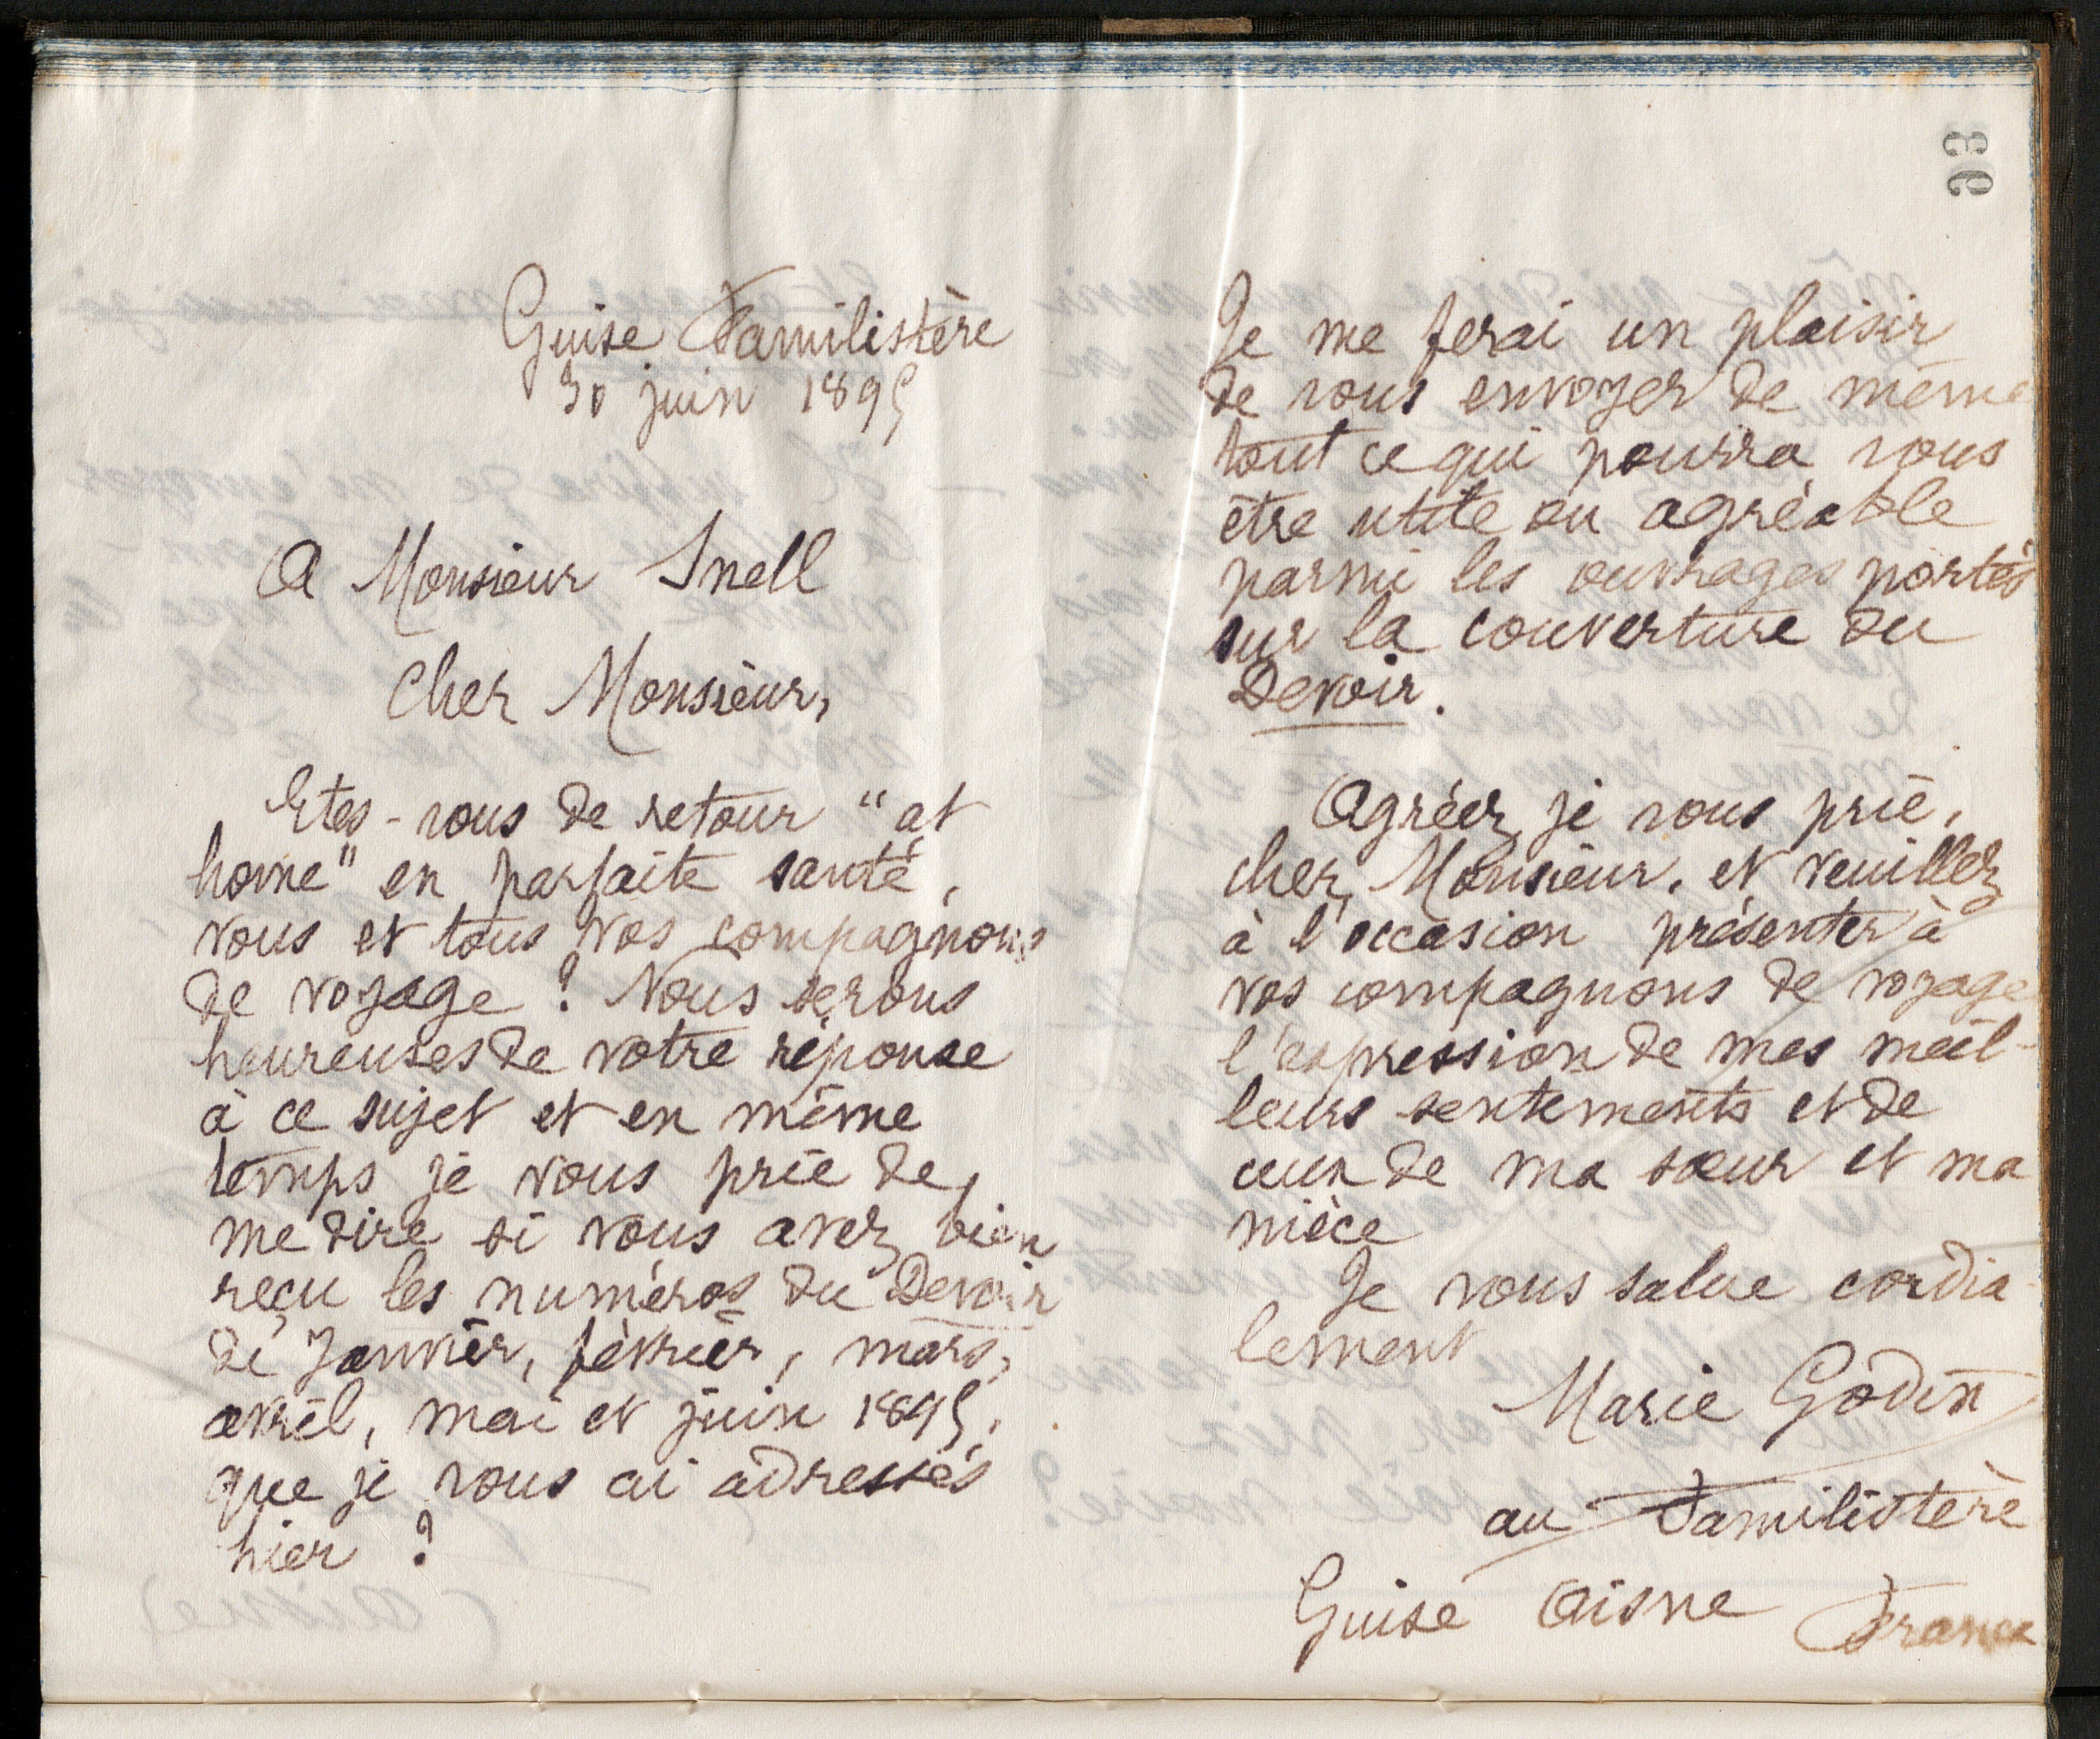 Guise Familistère
30 juin 1895
A Monsieur Snell
Cher Monsieur,
Etes-vous de retour "at
home" en parfaite santé,
vous et tous vos compagnons
de voyage ? Nous serons
heureuses de votre réponse
à ce sujet et en même
temps je vous prie de
me dire si vous avez bien
reçu les numéros du Devoir
de Janvier, février, mars,
avril, mai et juin 1895,
que je vous ai adressés
hier ?
93
Je me ferai un plaisir
de vous envoyer de même
tout ce qui pourra vous
être utile ou agréable
parmi les ouvrages portés
sur la couverture du
Devoir.
Agréez, je vous prie,
cher Monsieur, et veuillez
à l'occasion présenter à
vos compagnons de voyage
l'expression de mes meil-
leurs sentiments et de
ceux de ma sœur et ma
nièce
Je vous salue cordia-
lement
Marie Godin
au Familistère
Guise Aisne France